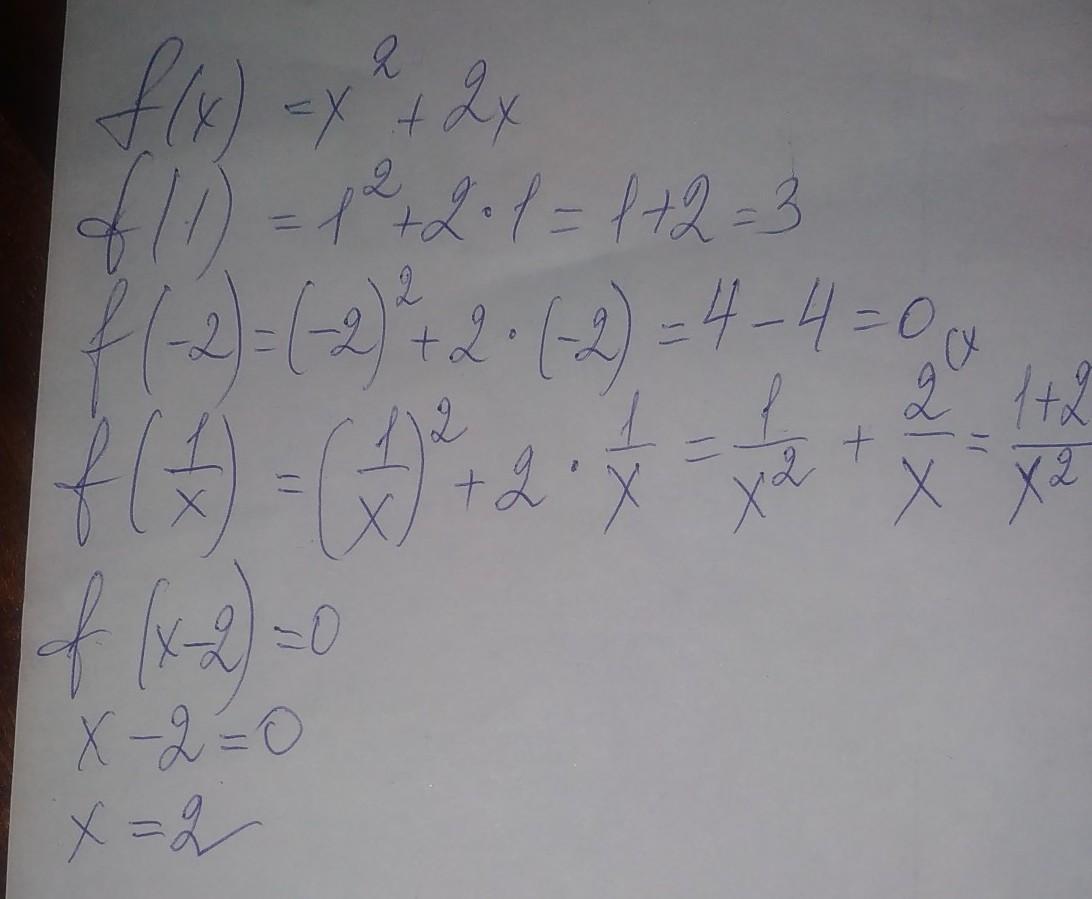 f(x) = x² + 2x
f(1) = 1² + 2·1 = 1+2 = 3
f(-2) = (-2)² + 2·(-2) = 4 - 4 = 0
f(1/x) = (1/x)² + 2 · 1/x = 1/x² + 2/x (x = 1+2/x²
f(x-2) = 0
x - 2 = 0
x = 2